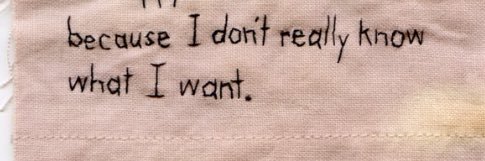 because I don't really know
what I want.